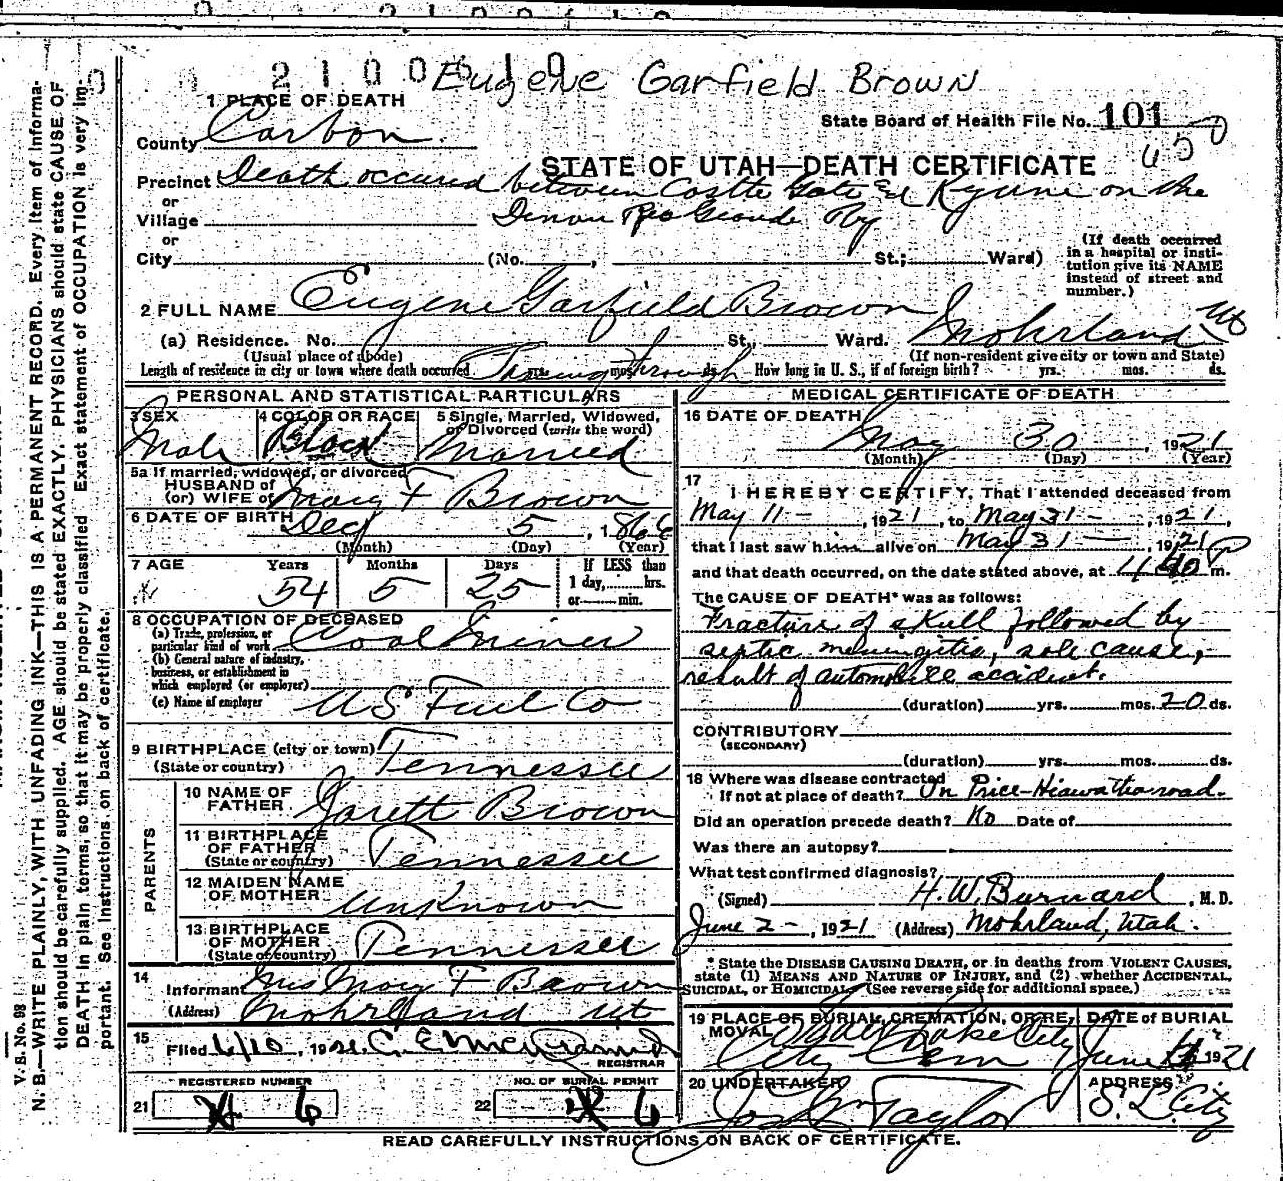 2100510
Eugene Garfield Brown
1 PLACE OF DEATH
State Board of Health File No. 101
650
County Carbon
STATE OF UTAH—DEATH CERTIFICATE
Precinct Death occured between Castle Gate and Kyune on the
or
Village Denver Rio Grande Ry
or
City (No. , St.; Ward)
(If death occurred in a hospital or institution give its NAME instead of street and number.)
2 FULL NAME Eugene Garfield Brown
(a) Residence. No. St., Ward. Mohrland Ut
(Usual place of abode) (If non-resident give city or town and State)
Length of residence in city or town where death occurred yrs. mos. ds. Through How long in U. S., if of foreign birth? yrs. mos. ds.
PERSONAL AND STATISTICAL PARTICULARS
3 SEX 4 COLOR OR RACE 5 Single, Married, Widowed, or Divorced (write the word)
Male Black Married
5a If married, widowed, or divorced
HUSBAND of
(or) WIFE of Mary F Brown
6 DATE OF BIRTH Dec 5, 1866
(Month) (Day) (Year)
7 AGE Years Months Days If LESS than
54 5 25 1 day, hrs.
or min.
8 OCCUPATION OF DECEASED
(a) Trade, profession, or
particular kind of work Coal Miner
(b) General nature of industry,
business, or establishment in
which employed (or employer)
(c) Name of employer U S Fuel Co
9 BIRTHPLACE (city or town)
(State or country) Tennessee
PARENTS
10 NAME OF
FATHER Jarett Brown
11 BIRTHPLACE
OF FATHER
(State or country) Tennessee
12 MAIDEN NAME
OF MOTHER Unknown
13 BIRTHPLACE
OF MOTHER
(State or country) Tennessee
14
Informant Mrs Mary F Brown
(Address) Mohrland Ut
15
Filed 6/10, 1921. C. E.
REGISTRAR
REGISTERED NUMBER NO. OF BURIAL PERMIT
21 6 22 6
MEDICAL CERTIFICATE OF DEATH
16 DATE OF DEATH
May 30 1921
(Month) (Day) (Year)
17
I HEREBY CERTIFY, That I attended deceased from
May 11 —, 1921, to May 31 —, 1921,
that I last saw him alive on May 31 —, 1921
and that death occurred, on the date stated above, at 11 40 P m.
The CAUSE OF DEATH* was as follows:
Fracture of skull followed by
septic meningitis, sole cause,
result of automobile accident.
(duration) yrs. mos. 20 ds.
CONTRIBUTORY
(SECONDARY)
(duration) yrs. mos. ds.
18 Where was disease contracted
If not at place of death? On Price-Hiawatha road.
Did an operation precede death? No Date of
Was there an autopsy?
What test confirmed diagnosis?
(Signed) H. W. Burnard, M. D.
June 2 —, 1921 (Address) Mohrland, Utah.
* State the DISEASE CAUSING DEATH, or in deaths from VIOLENT CAUSES,
state (1) MEANS AND NATURE OF INJURY, and (2) whether ACCIDENTAL,
SUICIDAL, or HOMICIDAL. (See reverse side for additional space.)
19 PLACE OF BURIAL, CREMATION, OR RE- DATE of BURIAL
MOVAL Lake City
City Cem June 1921
20 UNDERTAKER ADDRESS
Taylor S. L. City
READ CAREFULLY INSTRUCTIONS ON BACK OF CERTIFICATE.
V. S. No. 98
N. B.—WRITE PLAINLY, WITH UNFADING INK—THIS IS A PERMANENT RECORD. Every item of information should be carefully supplied. AGE should be stated EXACTLY. PHYSICIANS should state CAUSE OF DEATH in plain terms, so that it may be properly classified. Exact statement of OCCUPATION is very important. See instructions on back of certificate.